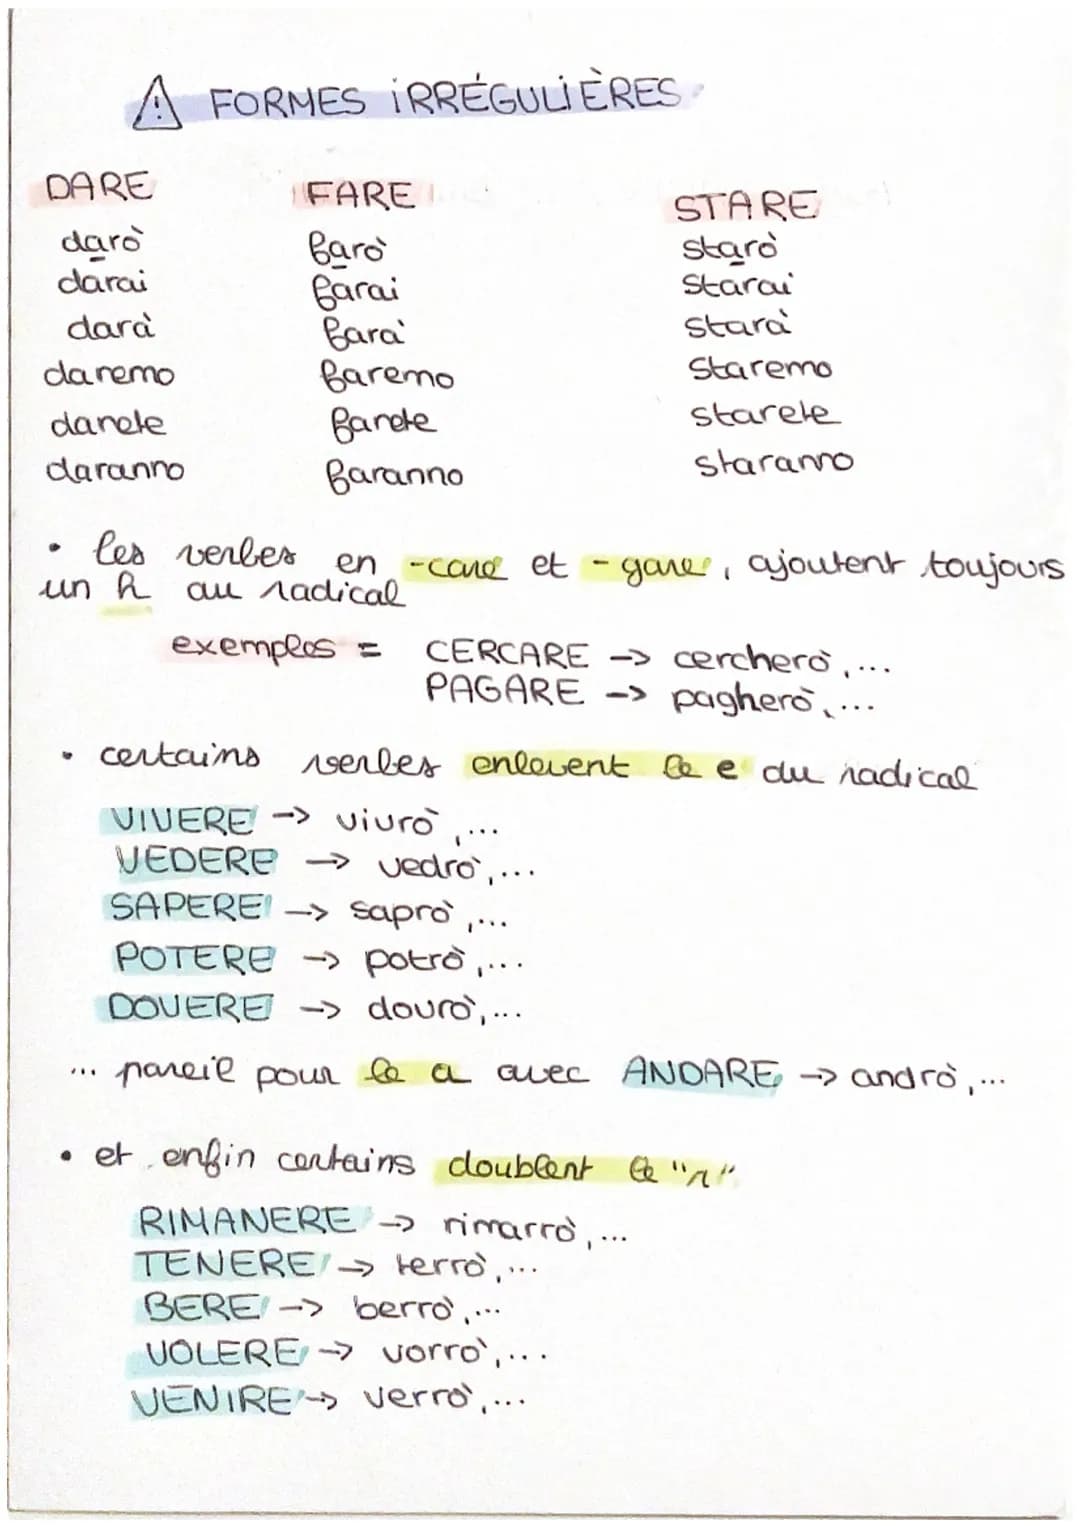 ⚠ FORMES IRRÉGULIÈRES
DARE FARE STARE
darò farò starò
darai farai starai
darà farà starà
daremo faremo staremo
darete farete starete
daranno faranno staranno
• les verbes en -care et -gare, ajoutent toujours
un h au radical
exemples = CERCARE -> cercherò,...
PAGARE -> pagherò,...
• certains verbes enlevent le e du radical
VIVERE -> vivrò,...
VEDERE -> vedrò,...
SAPERE -> saprò,...
POTERE -> potrò,...
DOVERE -> dovrò,...
... pareil pour le a avec ANDARE -> andrò,...
• et enfin certains doublent le "r"
RIMANERE -> rimarrò,...
TENERE -> terrò,...
BERE -> berrò,...
VOLERE -> vorrò,...
VENIRE -> verrò,...